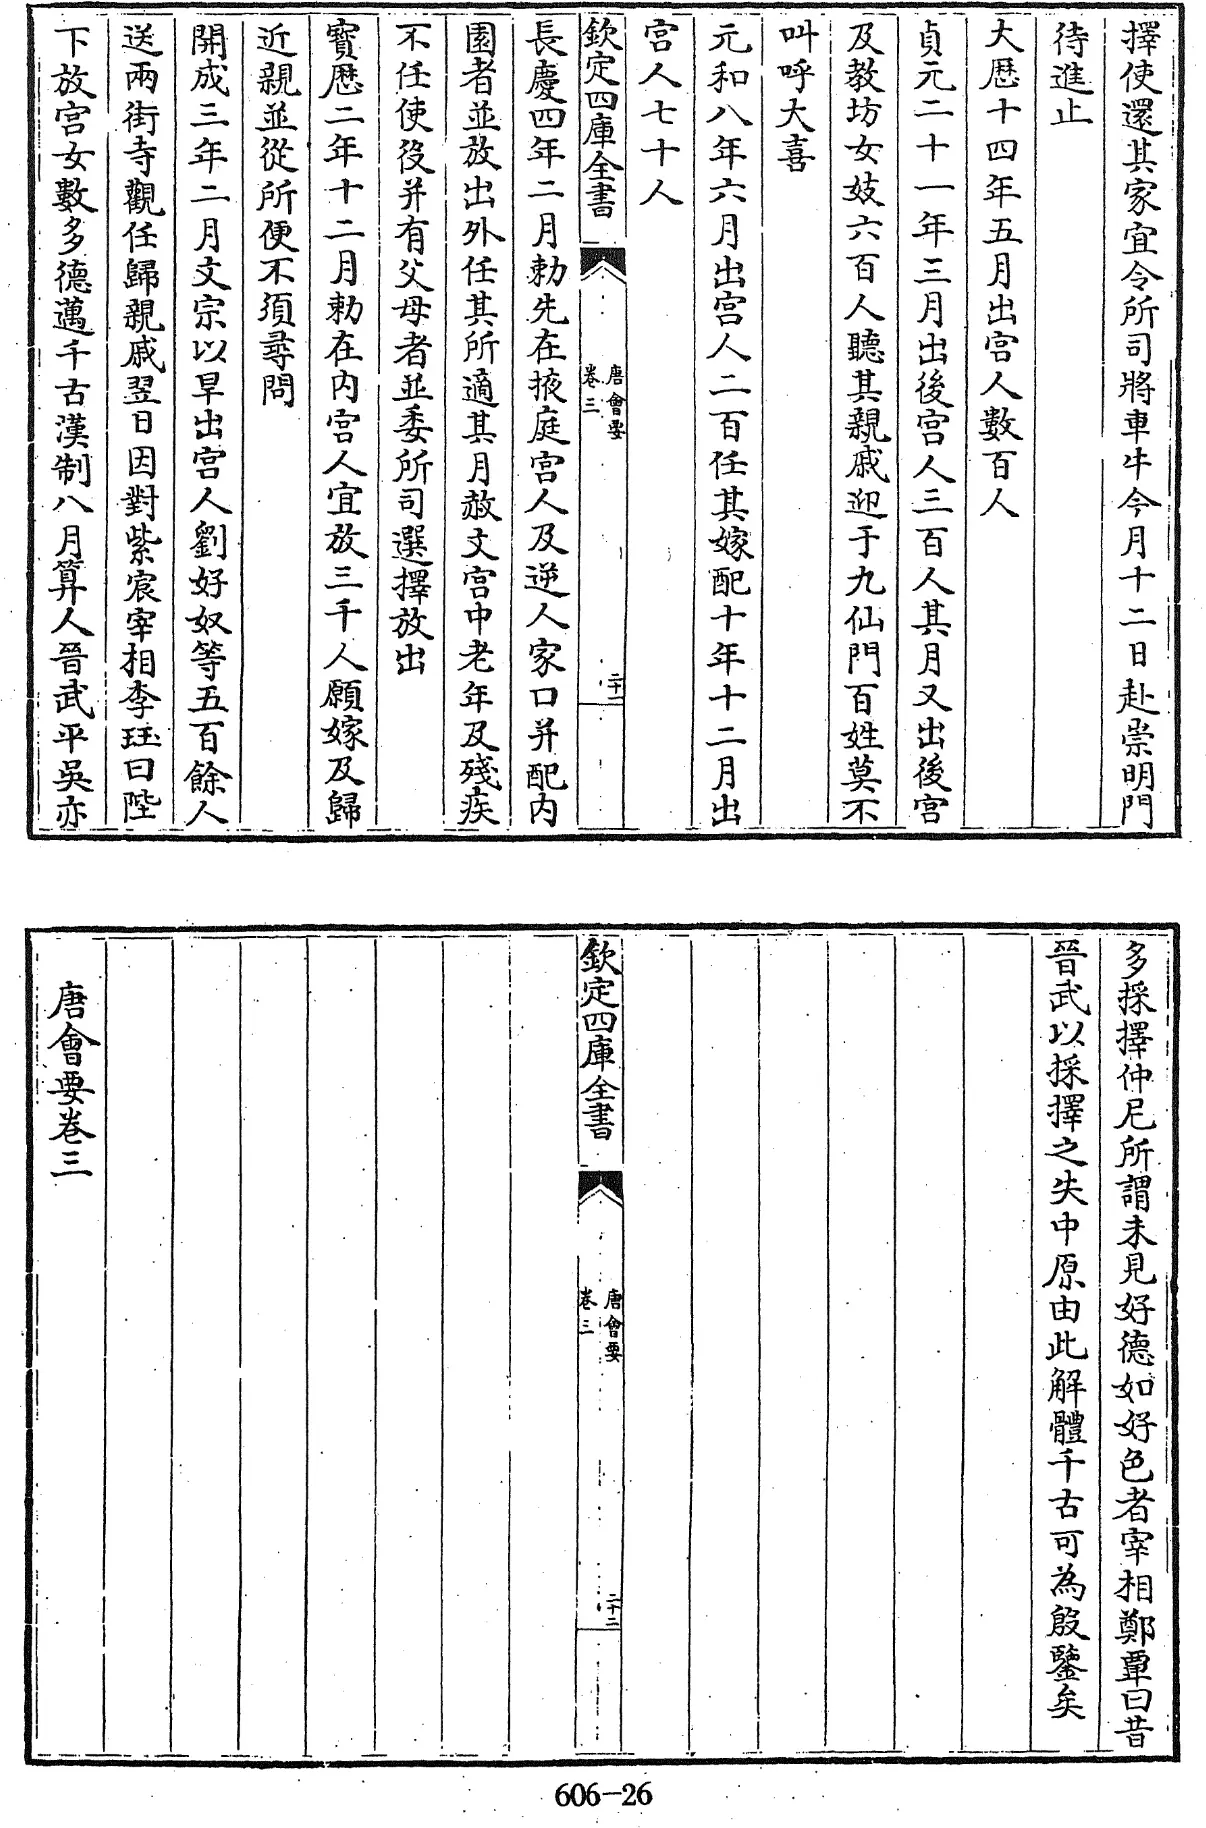 擇使還其家宜令所司將車牛今月十二日赴崇明門
待進止
大厯十四年五月出宮人數百人
貞元二十一年三月出後宮人三百人其月又出後宮
及教坊女妓六百人聽其親戚迎于九仙門百姓莫不
叫呼大喜
元和八年六月出宮人二百任其嫁配十年十二月出
宮人七十人
欽定四庫全書
唐會要
卷三
二十一
長慶四年二月勅先在掖庭宮人及逆人家口并配内
園者並放出外任其所適其月赦文宮中老年及殘疾
不任使役并有父母者並委所司選擇放出
寳厯二年十二月勅在内宮人宜放三千人願嫁及歸
近親並從所便不須尋問
開成三年二月文宗以旱出宮人劉好奴等五百餘人
送兩街寺觀任歸親戚翌日因對紫宸宰相李珏曰陛
下放宮女數多德邁千古漢制八月算人晉武平吳亦
多採擇仲尼所謂未見好德如好色者宰相鄭覃曰昔
晉武以採擇之失中原由此解體千古可為殷鑒矣
欽定四庫全書
唐會要
卷三
二十二
唐會要卷三
606-26